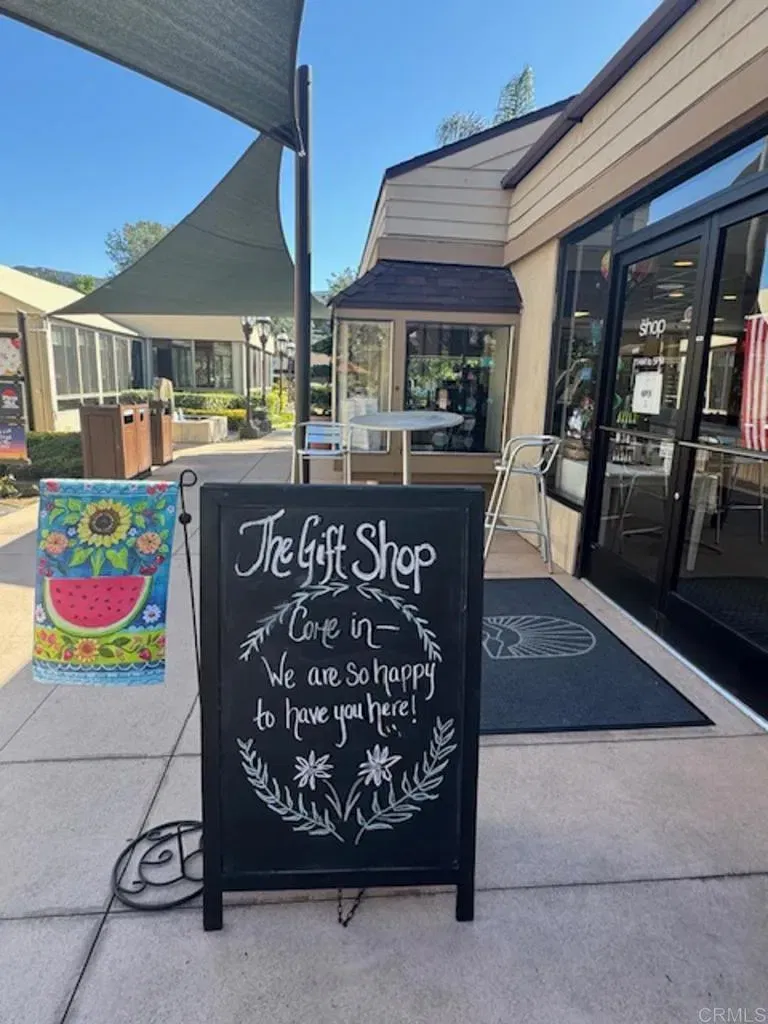 The Gift Shop
Come in—
We are so happy
to have you here!
shop
CRMLS